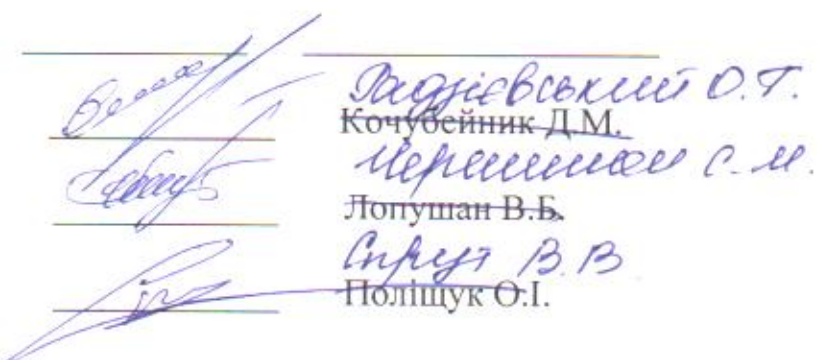 Радзієвський О.Т.
Кочубейник Д.М.
С.М.
Лопушан В.Б.
Спрут В.В
Поліщук О.І.